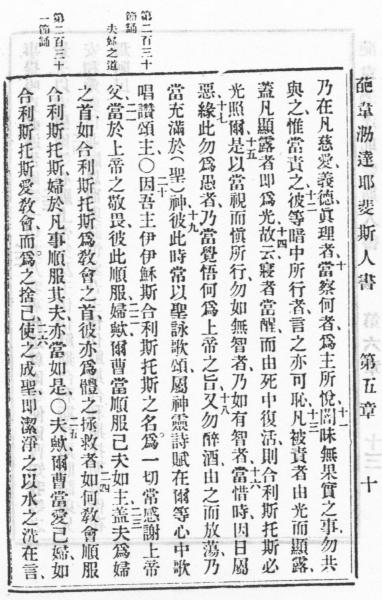 葩韋泐達耶斐斯人書 第五章 十
乃在凡慈愛義德真理者、當察何者爲主所悅、閊昧無果實之事勿共
與之、惟當責之、彼等暗中所行者、言之亦可恥、凡被責者由光而顯露、
蓋凡顯露者即爲光、故云寢者當醒而由死中復活、則合利斯托斯必
光照爾、是以當視而愼所行、勿如無智者、乃如有智者、當惜時、因日屬
惡、緣此勿爲愚者、乃當覺悟何爲上帝之旨、又勿醉酒、由之而放蕩、乃
當充滿於(聖)神、彼此時常以聖詠歌頌屬神靈詩賦、在爾等心中歌
唱讚頌主○因吾主伊伊穌斯合利斯托斯之名、爲一切常感謝上帝
父、當於上帝之敬畏彼此順服、婦歟爾曹當順服己夫如主、蓋夫爲婦
之首、如合利斯托斯爲教會之首、彼亦爲體之拯救者、如何教會順服
合利斯托斯、婦於凡事順服其夫亦當如是○夫歟爾曹當愛己婦、如
合利斯托斯愛教會、而爲之捨己、使之成聖、即潔淨之以水之洗在言、
第二百三十節誦
夫婦之道
第二百三十一節誦